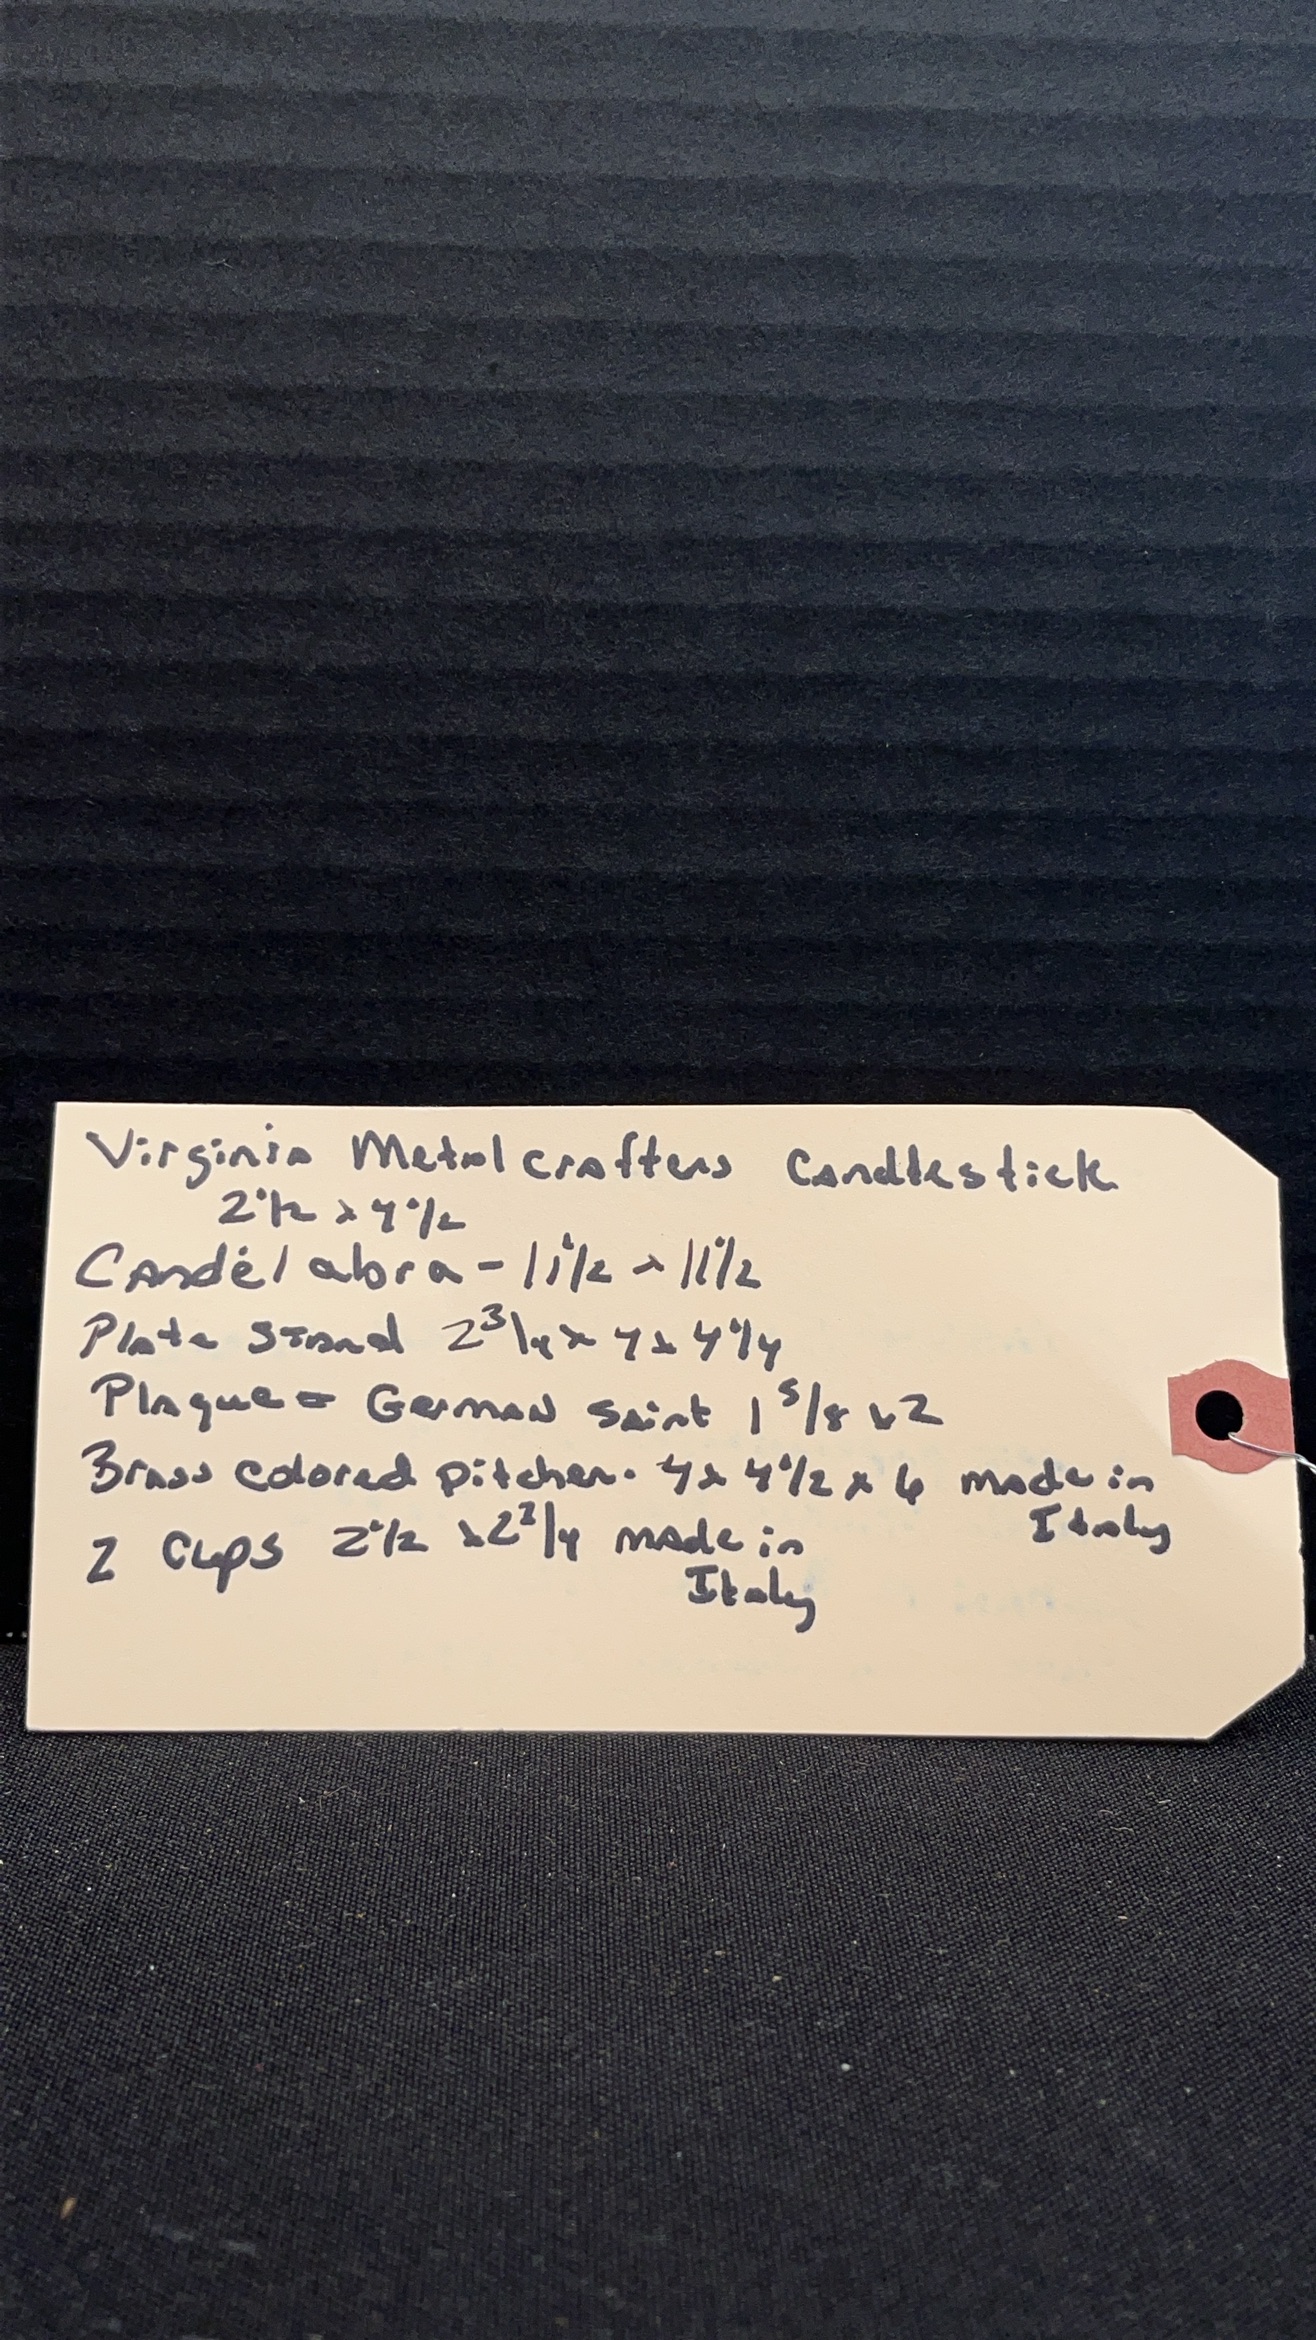 Virginia Metalcrafters Candlestick
2 1/2 x 4 1/2
Candelabra - 11 1/2 x 11 1/2
Plate Stand 2 3/4 x 4 x 4 1/4
Plaque - German Saint 1 5/8 x 2
Brass colored pitcher. 4 x 4 1/2 x 6 made in
Italy
2 Cups 2 1/2 x 2 3/4 made in
Italy